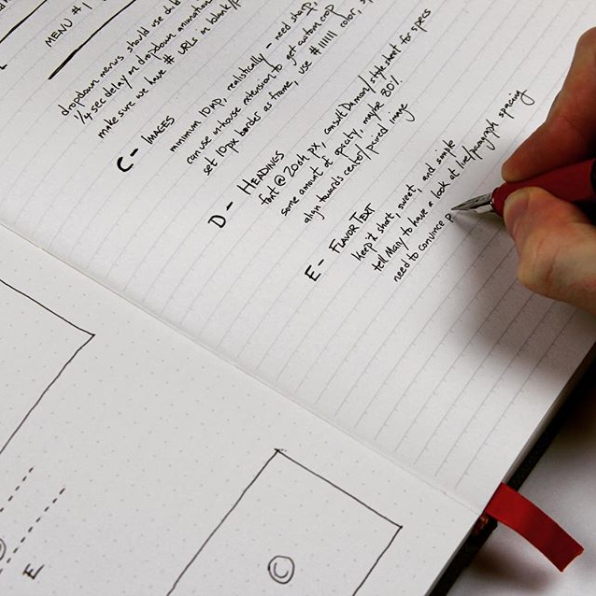 MENU #1
dropdown menus should use
1/4 sec delay on dropdown animation
make sure we have # URLs in blank/
C - IMAGES
minimum 10mp, realistically - need sharp,
can use in-house extension to get custom crop
set 10px border as frame, use #111111 color,
D - HEADINGS
font @ 20ish px, consult Damon/style sheet for specs
some amount of opacity, maybe 80%
align towards center/pointed image
E - FLAVOR TEXT
keep it short, sweet, and simple
tell Mary to have a look at line/paragraph spacing
need to convince p
C
E